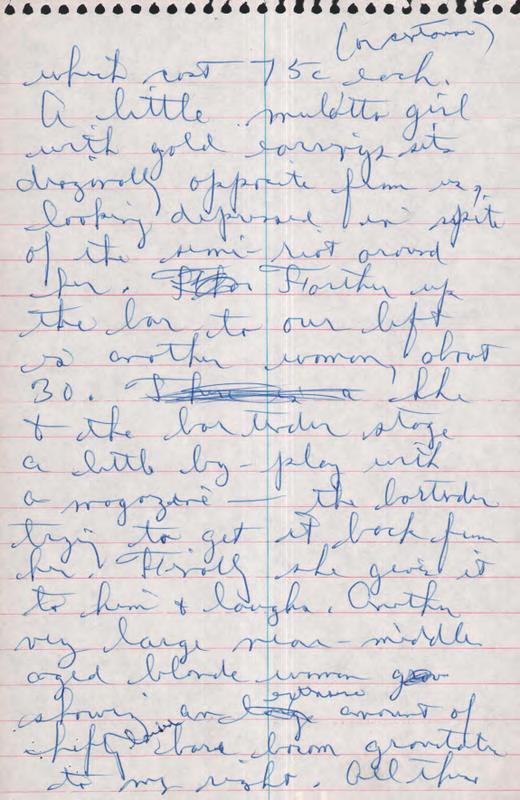 which cost 75c each.
A little mulatto girl
with gold earrings sits
diagonally opposite from us,
looking depressed in spite
of the semi-riot around
her. Farther up
the bar to our left
is another woman, about
30. She
& the bartender stage
a little by-play with
a magazine — the bartender
trying to get it back from
her. Finally she gives it
to him & laughs. Another
very large near-middle
aged blonde woman
showing an extensive amount of
bare bosom gravitates
to my right. All this